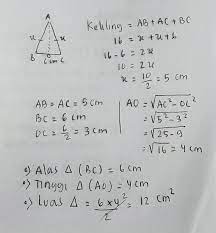 A
x x
B 6 cm C
Keliling = AB + AC + BC
16 = x + x + 6
16 - 6 = 2x
10 = 2x
x = 10/2 = 5 cm
AB = AC = 5 cm
BC = 6 cm
OC = 6/2 = 3 cm
AO = √AC² - OC²
= √5² - 3²
= √25 - 9
= √16 = 4 cm
a) Alas Δ (BC) = 6 cm
b) Tinggi Δ (AO) = 4 cm
c) Luas Δ = 6 x 4²/2 = 12 cm²